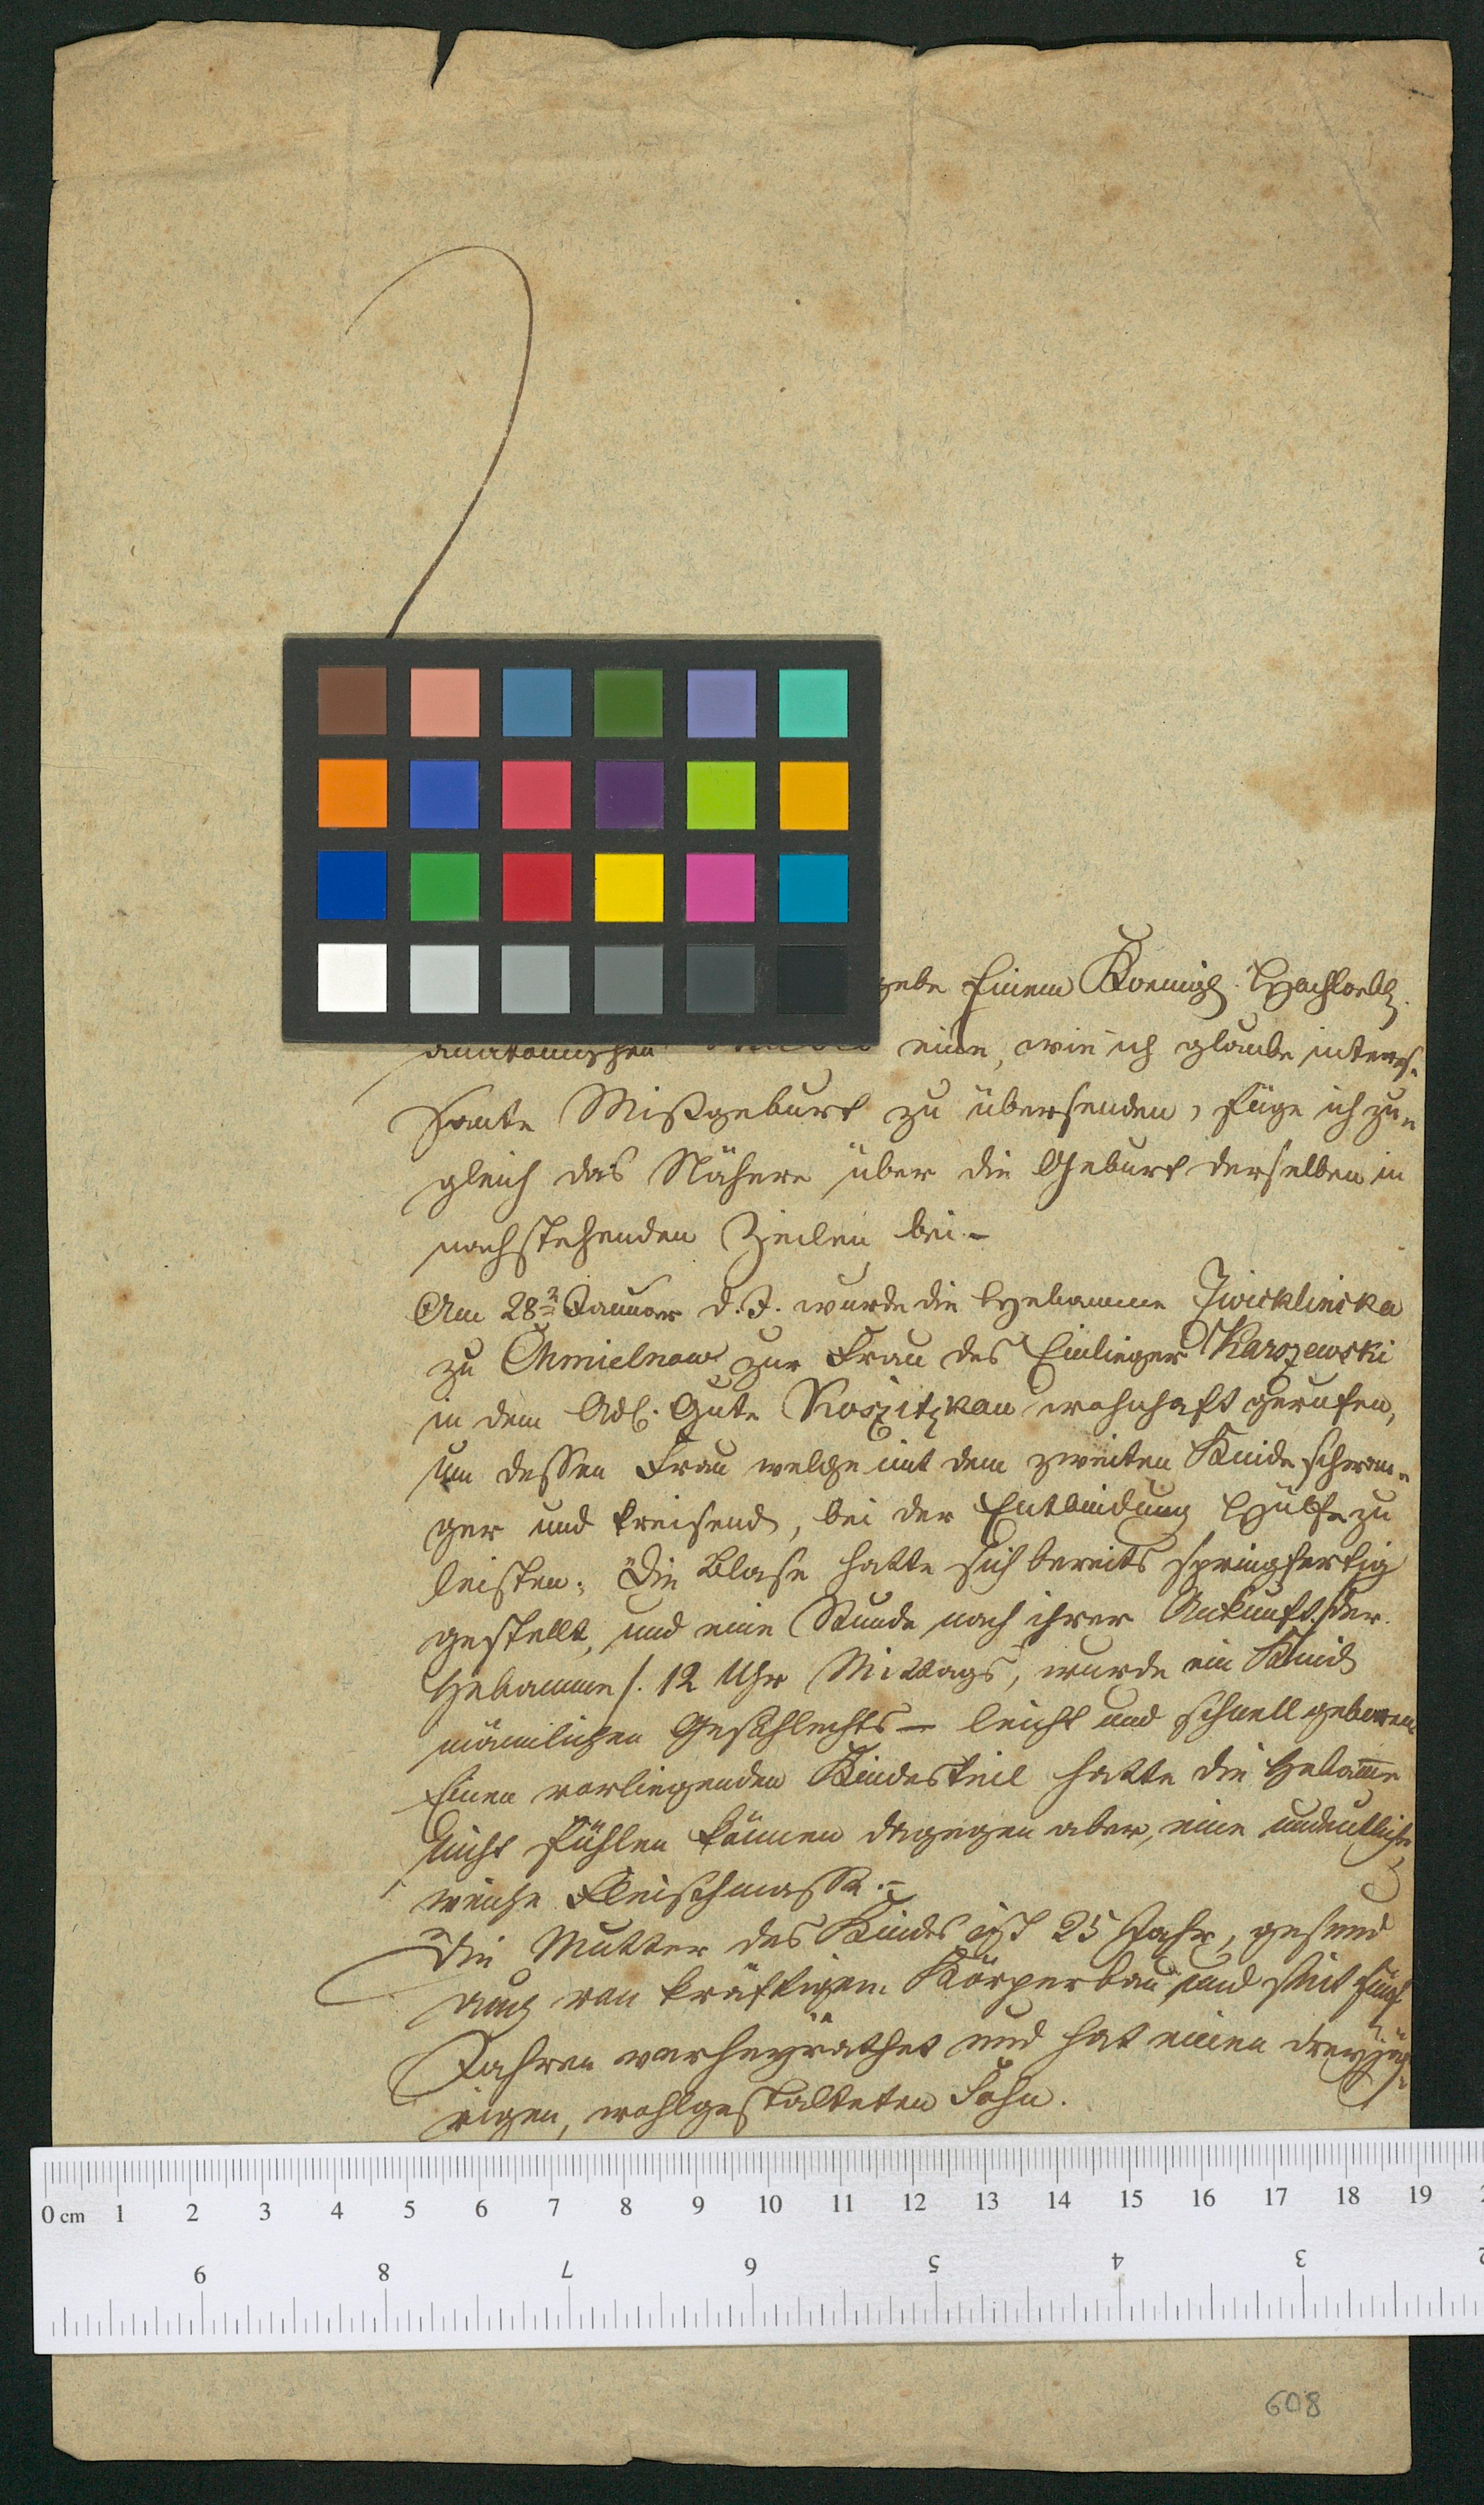 gebe Einem Koenigl. Hochloebl.
anatomischen eine, wie ich glaube interes-
sante Mißgeburt zu übersenden, füge ich zu-
gleich das Nähere über die Geburt derselben in
nachstehenden Zeilen bei.-
Am 28n Januar d. J. wurde die Hebamme Zwicklinska
zu Chmielnow zur Frau des Einlieger Karszewski
in dem Adl. Gute Koszitzkau wohnhaft gerufen,
um dessen Frau welche mit dem zweiten Kinde schwan-
ger und kreisend, bei der Entbindung Hülfe zu
leisten. Die Blase hatte sich bereits springfertig
gestellt, und eine Stunde nach ihrer Ankunft /:der
Hebamme/. 12 Uhr Mittags, wurde ein Kind
mänlichen Geschlechts — leicht und schnell geboren
Einen vorliegenden Kindestheil hatte die Hebam̅e
nicht fühlen können dagegen aber, eine undeutliche
weiche Fleischmasse.-
Die Mutter des Kindes ist 25 Jahr, gesund
auch von kräftigem Körperbau und seit fünf
Jahren verheyrathet und hat einen dreyjäh-
rigen, wohlgestalteten Sohn.
0 cm 1 2 3 4 5 6 7 8 9 10 11 12 13 14 15 16 17 18 19
9 8 7 6 5 4 3 2
608